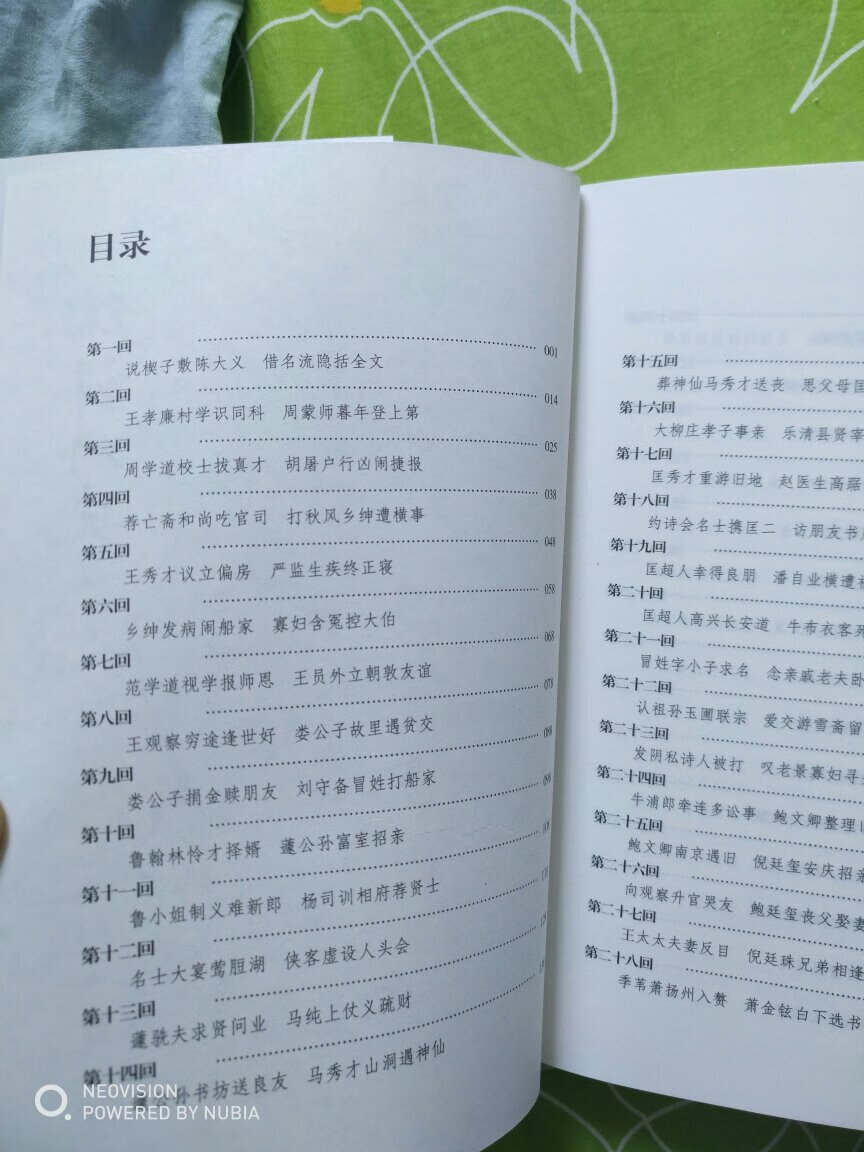 目录
第一回 001
说楔子敷陈大义 借名流隐括全文
第二回 014
王孝廉村学识同科 周蒙师暮年登上第
第三回 025
周学道校士拔真才 胡屠户行凶闹捷报
第四回 038
荐亡斋和尚吃官司 打秋风乡绅遭横事
第五回 048
王秀才议立偏房 严监生疾终正寝
第六回 058
乡绅发病闹船家 寡妇含冤控大伯
第七回 068
范学道视学报师恩 王员外立朝敦友谊
第八回 078
王观察穷途逢世好 娄公子故里遇贫交
第九回 088
娄公子捐金赎朋友 刘守备冒姓打船家
第十回
鲁翰林怜才择婿 蘧公孙富室招亲
第十一回
鲁小姐制义难新郎 杨司训相府荐贤士
第十二回
名士大宴莺脰湖 侠客虚设人头会
第十三回
蘧駪夫求贤问业 马纯上仗义疏财
第十四回
公孙书坊送良友 马秀才山洞遇神仙
第十五回
葬神仙马秀才送丧 思父母匡
第十六回
大柳庄孝子事亲 乐清县贤宰
第十七回
匡秀才重游旧地 赵医生高踞
第十八回
约诗会名士携匡二 访朋友书
第十九回
匡超人幸得良朋 潘自业横遭
第二十回
匡超人高兴长安道 牛布衣客死
第二十一回
冒姓字小子求名 念亲戚老夫卧
第二十二回
认祖孙玉圃联宗 爱交游雪斋留
第二十三回
发阴私诗人被打 叹老景寡妇寻
第二十四回
牛浦郎牵连多讼事 鲍文卿整理
第二十五回
鲍文卿南京遇旧 倪廷玺安庆招亲
第二十六回
向观察升官哭友 鲍廷玺丧父娶妻
第二十七回
王太太夫妻反目 倪廷珠兄弟相逢
第二十八回
季苇萧扬州入赘 萧金铉白下选书
NEOVISION
POWERED BY NUBIA